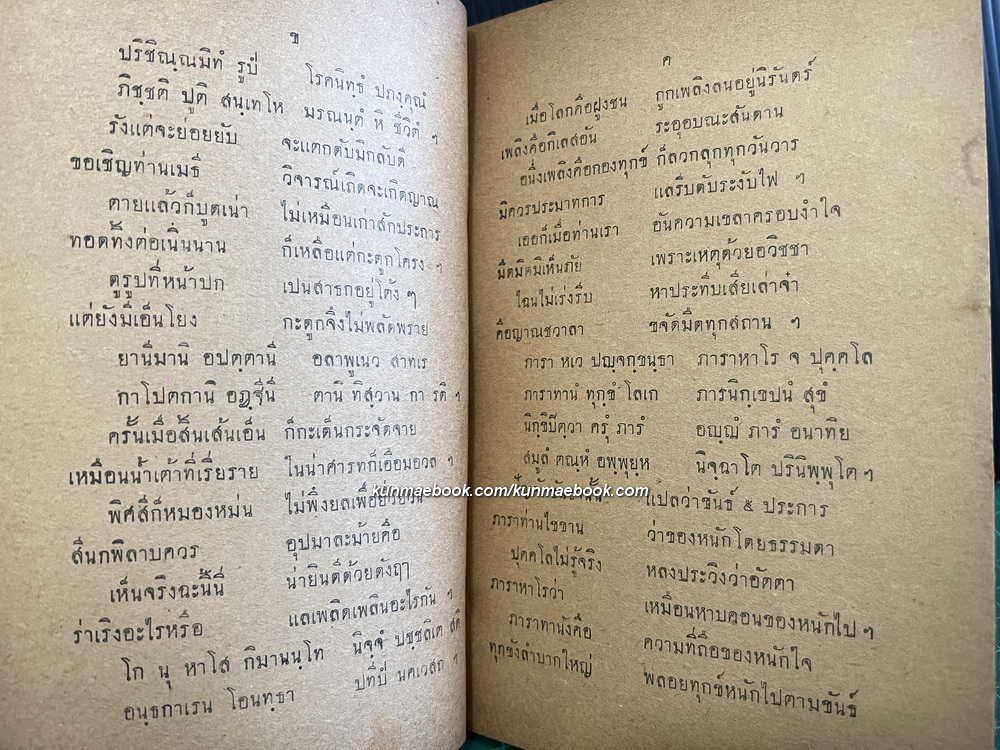 ข
ปริชิณฺณมิทํ รูปํ โรคนิทฺธํ ปภงฺคุณํ
ภิชฺชติ ปูติ สนฺเทโห มรณนฺตํ หิ ชีวิตํ ฯ
รังแต่จะย่อยยับ จะแตกดับมิกลับดี
ขอเชิญท่านเมธี วิจารณ์เถิดจะเกิดญาณ
ตายแล้วก็บูดเน่า ไม่เหมือนเก่าสักประการ
ทอดทิ้งต่อเนิ่นนาน ก็เหลือแต่กะดูกโครง ฯ
ดูรูปที่หน้าปก เปนสาธกอยู่โต้ง ๆ
แต่ยังมีเอ็นโยง กะดูกจึ่งไม่พลัดพราย
ยานีมานิ อปตฺตานิ อลาพูเนว สาทเร
กาโปตกานิ อฏฺฐีนิ ตานิ ทิสฺวาน กา รติ ฯ
ครั้นเมื่อสิ้นเส้นเอ็น ก็กะเด็นกระจัดจาย
เหมือนน้ำเต้าที่เรี่ยราย ในน่าศารทก็เอือมอวล ฯ
พิศสีก็หมองหม่น ไม่พึ่งยล
สีนกพิลาบควร อุปมาละม้ายคือ
เห็นจริงฉะนี้นี่ น่ายินดีด้วยดังฤๅ
ร่าเริงอะไรหรือ แลเพลิดเพลินอะไรกัน ฯ
โก นุ หาโส กิมานนฺโท นิจฺจํ ปชฺชลิเต สติ
อนฺธกาเรน โอนทฺธา ปทีปํ นคเวสถ ฯ
ค
เมื่อโลกคือฝูงชน ถูกเพลิงลนอยู่นิรันตร์
เพลิงคือกิเลสอัน ระอุอบณะสันดาน
อนึ่งเพลิงคือกองทุกข์ ก็ลวกลุกทุกวันวาร
มิควรประมาทการ แลรีบดับระงับไฟ ฯ
เออก็เมื่อท่านเรา อันความเขลาครอบงำใจ
มืดมิดมิเห็นภัย เพราะเหตุด้วยอวิชชา
ไฉนไม่เร่งรีบ หาประทีบเสียเล่าจ๋า
คือญาณชวาลา ขจัดมืดทุกสถาน ฯ
ภารา หเว ปญฺจกฺขนฺธา ภาราหาโร จ ปุคฺคโล
ภาราทานํ ทุกฺขํ โลเก ภารนิกฺเขปนํ สุขํ
นิกฺขิปิตฺวา ครุํ ภารํ อญฺญํ ภารํ อนาทิย
สมูลํ ตณฺหํ อพฺพุยฺห นิจฺฉาโต ปรินิพฺพุโต ฯ
แปลว่าขันธ์ ๕ ประการ
kunmaebook.com/kunmaebook.com
ภาราท่านไขขาน ว่าของหนักโดยธรรมดา
ปุคคโลไม่รู้จริง หลงประวิงว่าอัตตา
ภาราหาโรว่า เหมือนหาบคอนของหนักไป ฯ
ภาราทานังคือ ความที่ถือของหนักใจ
ทุกขังลำบากใหญ่ พลอยทุกข์หนักไปตามขันธ์